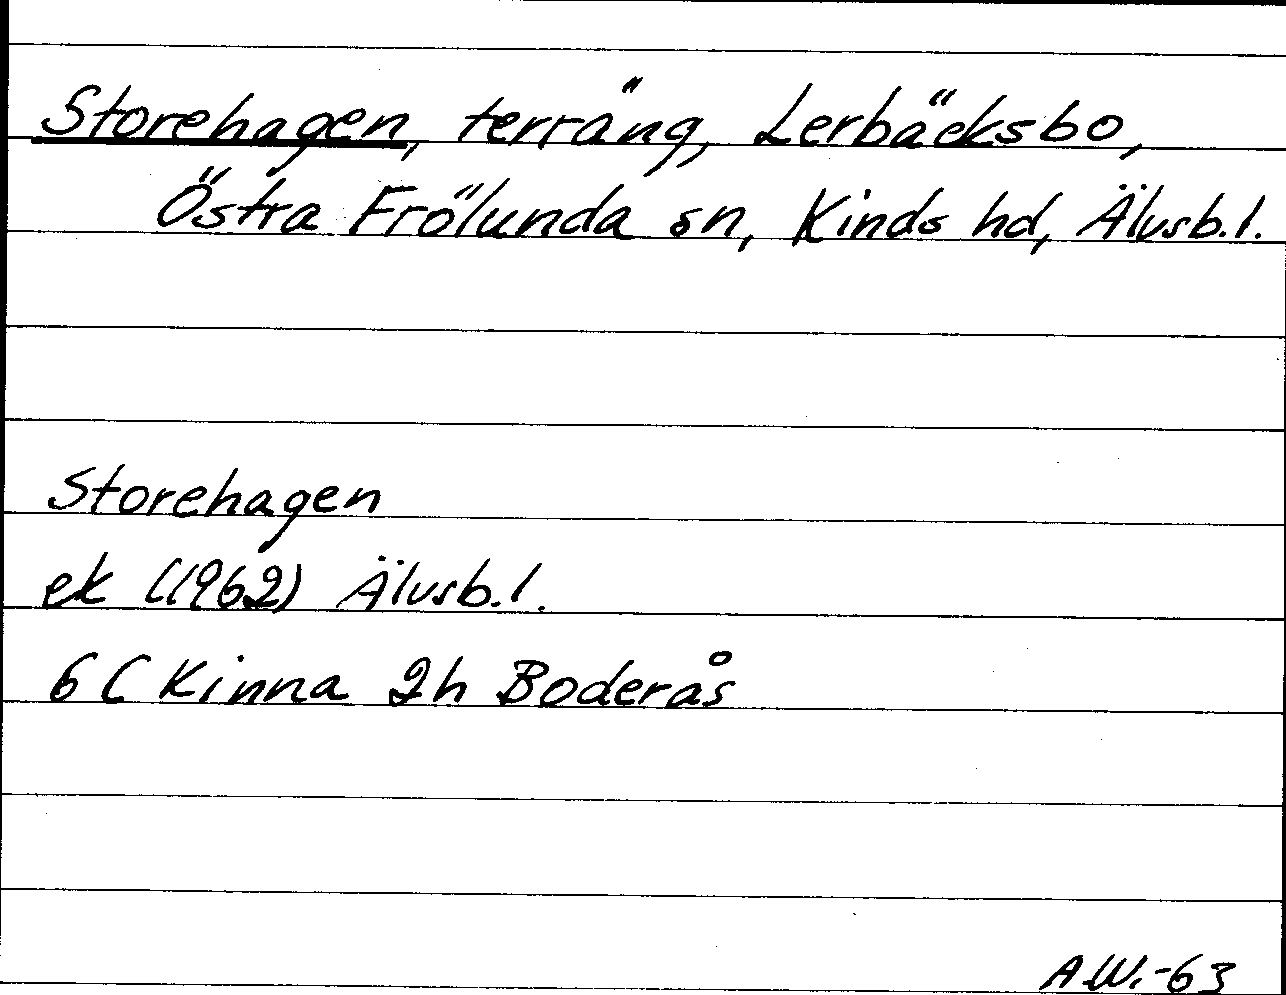 Storehagen, terräng, Lerbäcksbo,
Östra Frölunda sn, Kinds hd, Älvsb. l.
Storehagen
ek (1962) Älvsb. l.
6 C Kinna 2h Boderås
A.W.-63